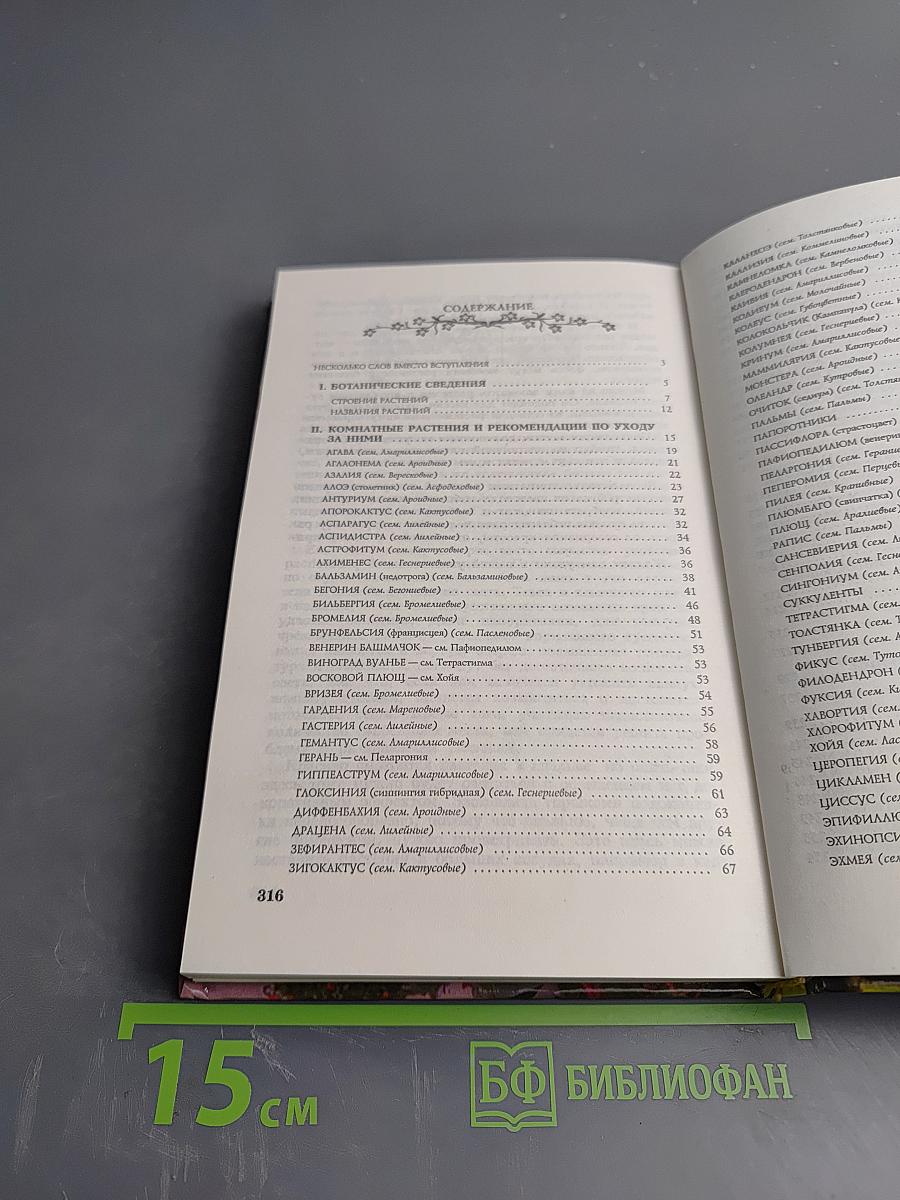 СОДЕРЖАНИЕ
НЕСКОЛЬКО СЛОВ ВМЕСТО ВСТУПЛЕНИЯ 3
I. БОТАНИЧЕСКИЕ СВЕДЕНИЯ 5
СТРОЕНИЕ РАСТЕНИЙ 7
НАЗВАНИЯ РАСТЕНИЙ 12
II. КОМНАТНЫЕ РАСТЕНИЯ И РЕКОМЕНДАЦИИ ПО УХОДУ
ЗА НИМИ 15
АГАВА (сем. Амариллисовые) 19
АГЛАОНЕМА (сем. Ароидные) 21
АЗАЛИЯ (сем. Вересковые) 22
АЛОЭ (столетник) (сем. Асфоделовые) 23
АНТУРИУМ (сем. Ароидные) 27
АПОРОКАКТУС (сем. Кактусовые) 32
АСПАРАГУС (сем. Лилейные) 32
АСПИДИСТРА (сем. Лилейные) 34
АСТРОФИТУМ (сем. Кактусовые) 36
АХИМЕНЕС (сем. Геснериевые) 36
БАЛЬЗАМИН (недотрога) (сем. Бальзаминовые) 38
БЕГОНИЯ (сем. Бегониевые) 41
БИЛЬБЕРГИЯ (сем. Бромелиевые) 46
БРОМЕЛИЯ (сем. Бромелиевые) 48
БРУНФЕЛЬСИЯ (францисцея) (сем. Пасленовые) 51
ВЕНЕРИН БАШМАЧОК — см. Пафиопедилюм 53
ВИНОГРАД ВУАНЬЕ — см. Тетрастигма 53
ВОСКОВОЙ ПЛЮЩ — см. Хойя 53
ВРИЗЕЯ (сем. Бромелиевые) 54
ГАРДЕНИЯ (сем. Мареновые) 55
ГАСТЕРИЯ (сем. Лилейные) 56
ГЕМАНТУС (сем. Амариллисовые) 58
ГЕРАНЬ — см. Пеларгония 59
ГИППЕАСТРУМ (сем. Амариллисовые) 59
ГЛОКСИНИЯ (синнингия гибридная) (сем. Геснериевые) 61
ДИФФЕНБАХИЯ (сем. Ароидные) 63
ДРАЦЕНА (сем. Лилейные) 64
ЗЕФИРАНТЕС (сем. Амариллисовые) 66
ЗИГОКАКТУС (сем. Кактусовые) 67
316
КАЛАНХОЭ (сем. Толстянковые)
КАЛЛИЗИЯ (сем. Коммелиновые)
КАМНЕЛОМКА (сем. Камнеломковые)
КЛЕРОДЕНДРОН (сем. Вербеновые)
КЛИВИЯ (сем. Амариллисовые)
КОДИЕУМ (сем. Молочайные)
КОЛЕУС (сем. Губоцветные)
КОЛОКОЛЬЧИК (Кампанула) (сем.
КОЛУМНЕЯ (сем. Геснериевые)
КРИНУМ (сем. Амариллисовые)
МАММИЛЯРИЯ (сем. Кактусовые
МОНСТЕРА (сем. Ароидные)
ОЛЕАНДР (сем. Кутровые)
ОЧИТОК (седиум) (сем. Толстян
ПАЛЬМЫ (сем. Пальмы)
ПАПОРОТНИКИ
ПАССИФЛОРА (страстоцвет)
ПАФИОПЕДИЛЮМ (венерин
ПЕЛАРГОНИЯ (сем. Герани
ПЕПЕРОМИЯ (сем. Перцевы
ПИЛЕЯ (сем. Крапивные)
ПЛЮМБАГО (свинчатка) (
ПЛЮЩ (сем. Аралиевые)
РАПИС (сем. Пальмы)
САНСЕВИЕРИЯ (сем.
СЕНПОЛИЯ (сем. Гесн
СИНГОНИУМ (сем. А
СУККУЛЕНТЫ
ТЕТРАСТИГМА (сем.
ТОЛСТЯНКА (сем. Т
ТУНБЕРГИЯ (сем. А
ФИКУС (сем. Туто
ФИЛОДЕНДРОН (
ФУКСИЯ (сем. Ки
ХАВОРТИЯ (сем.
ХЛОРОФИТУМ (
ХОЙЯ (сем. Лас
ЦЕРОПЕГИЯ (
ЦИКЛАМЕН (
ЦИССУС (сем
ЭПИФИЛЛЮ
ЭХИНОПСИ
ЭХМЕЯ (сем
15 см
БФ БИБЛИОФАН